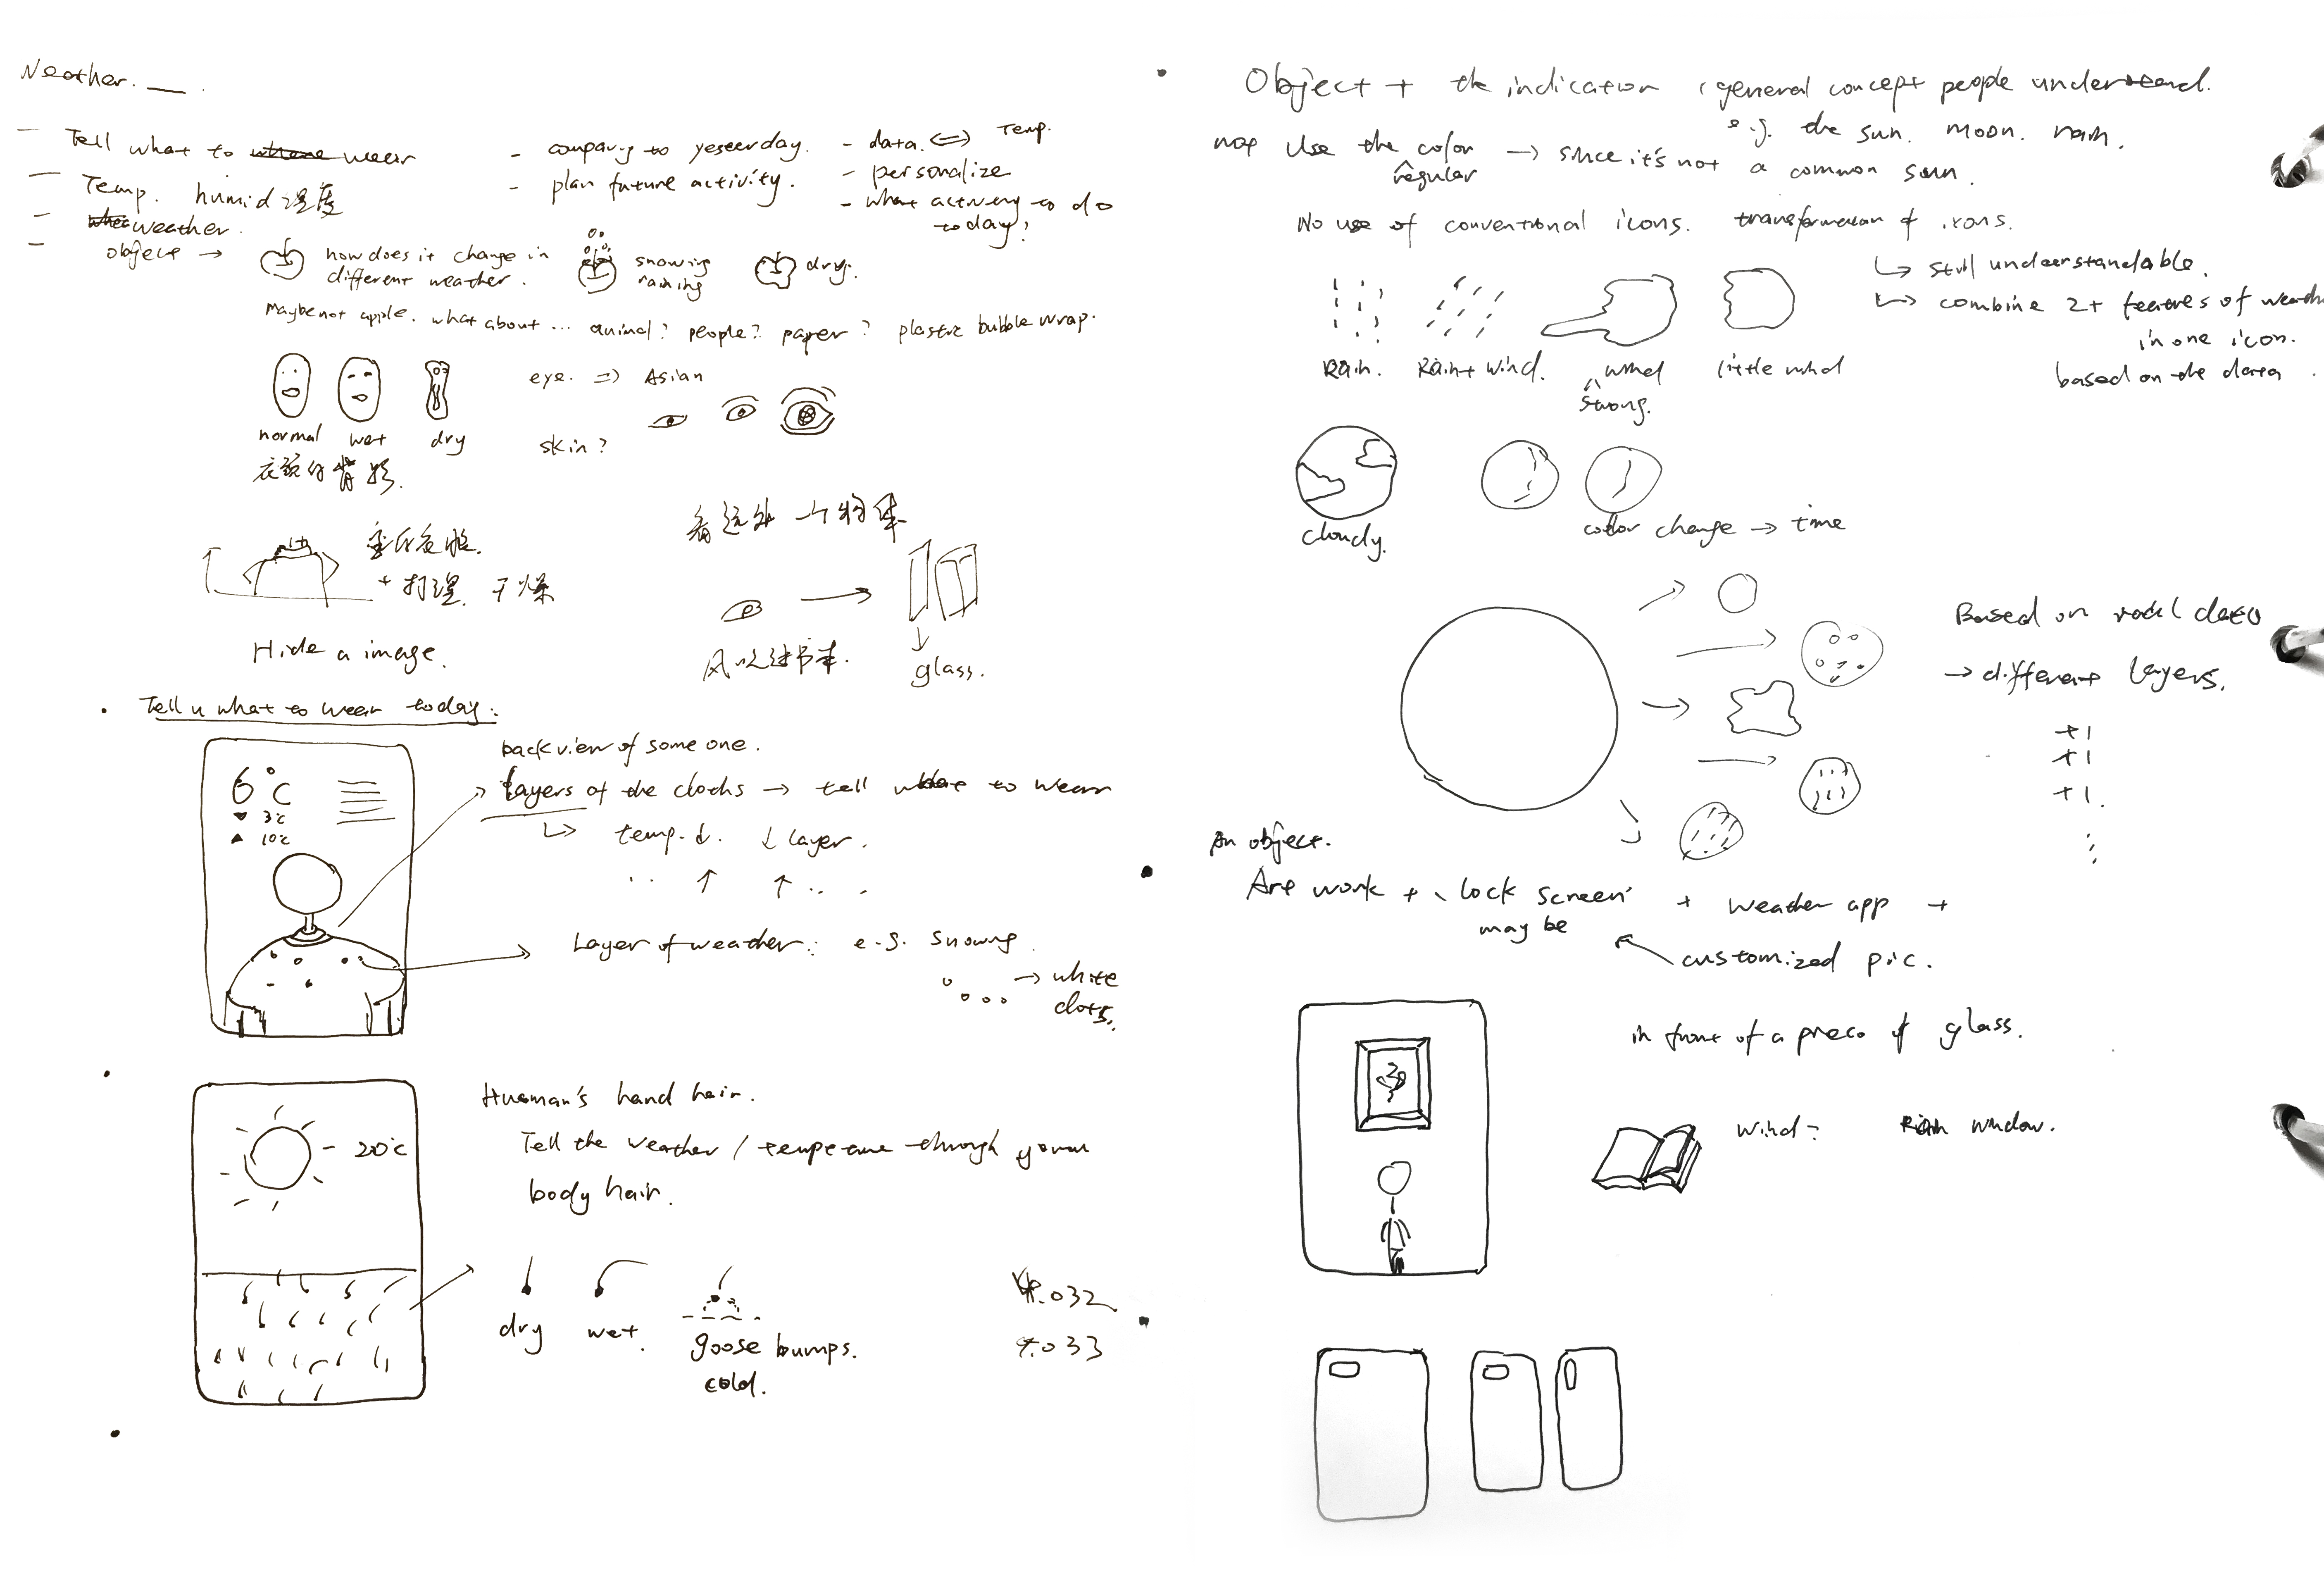 Weather.
- Tell what to wear
- Temp. humid 湿度
- weather.
- object →
- comparing to yesterday.
- plan future activity.
- data. ⇔ Temp.
- personalize
- what activity to do
today?
how does it change in
different weather.
snowing
raining
dry.
Maybe not apple. what about ... animal? people? paper? plastic bubble wrap.
normal wet dry
eye. ⇒ Asian
skin?
衣领的背影.
+ 打理 干燥
Hide a image.
看远处一个物体
风吹过书本.
glass.
• Tell u what to wear today:
6°C
▼ 3°C
▲ 10°C
back view of some one.
layers of the cloths → tell what to wear
↳ temp. ↓ ↓ layer.
.. ↑ ↑ .. .
Layer of weather: e.g. snowing.
→ white
dots.
20°C
Huaman's hand hair.
Tell the weather / tempetaure through your
body hair.
dry wet. goose bumps.
cold.
.032
.033
Object + the indication, general concept people understand.
e.g. the sun. moon. rain.
not use the regular color → since it's not a common sun.
No use of conventional icons. transformation of icons.
↳ still understandable.
↳ combine 2+ features of weath
in one icon.
based on the data.
Rain. Rain + wind. strong wind little wind
cloudy.
color change → time
Based on real data
→ different layers.
+1
+1
+1.
An object.
Art work + lock screen + weather app +
may be
customized pic.
in front of a piece of glass.
wind? Rain window.